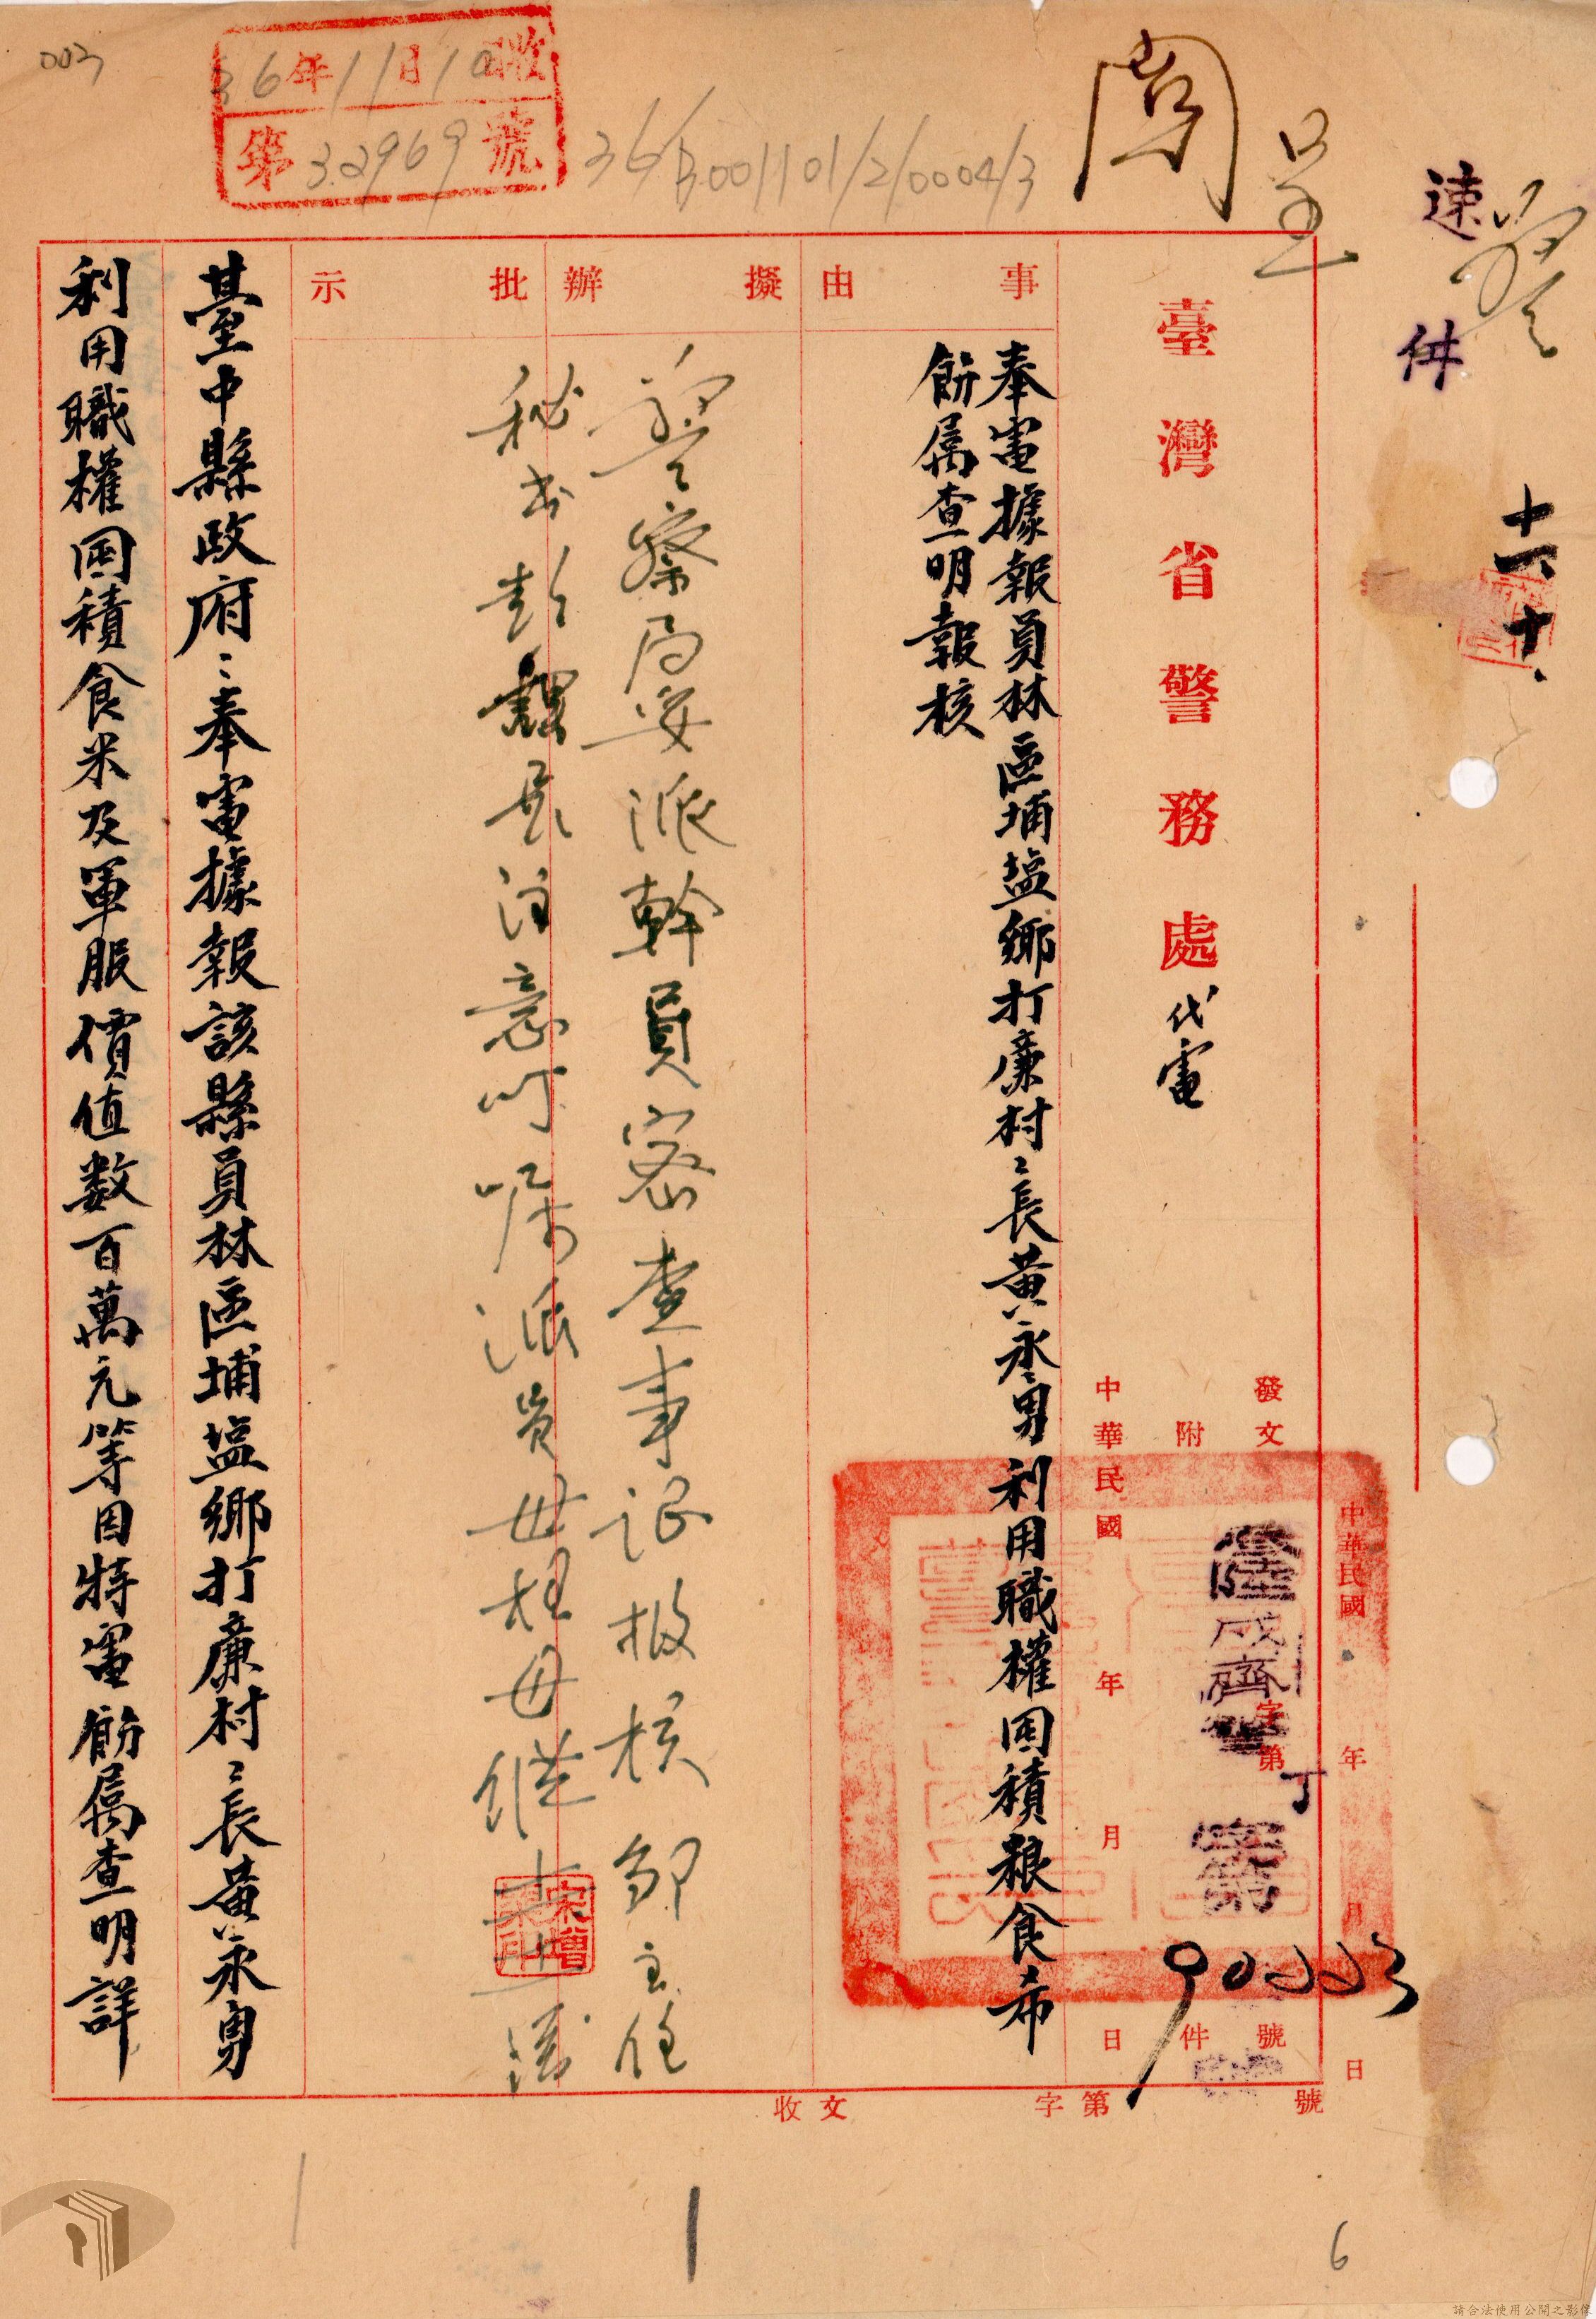 003
36年11月10日收
第32969號
36/B001101/2/0004/3
閱
速件
十一、十、
臺灣省警務處代電
發文
中華民國 年 月 日
陸成齊
字第 丁 90223 號
附 件
中華民國 年 月 日
事由
奉電據報員林區埔盐鄉打廉村〻長黃永勇利用職權囤積粮食希
飭属查明報核
擬辦
警察局妥派幹員密查事證報核
邹主任
批示
秘书彭
長注意叮嘱派員毋枉毋縱
臺中縣政府〻奉電據報該縣員林區埔盐鄉打廉村〻長黃永勇
利用職權囤積食米及軍服價值数百萬元等因特電飭属查明詳
收文 字第 號
6
請合法使用公開之影像